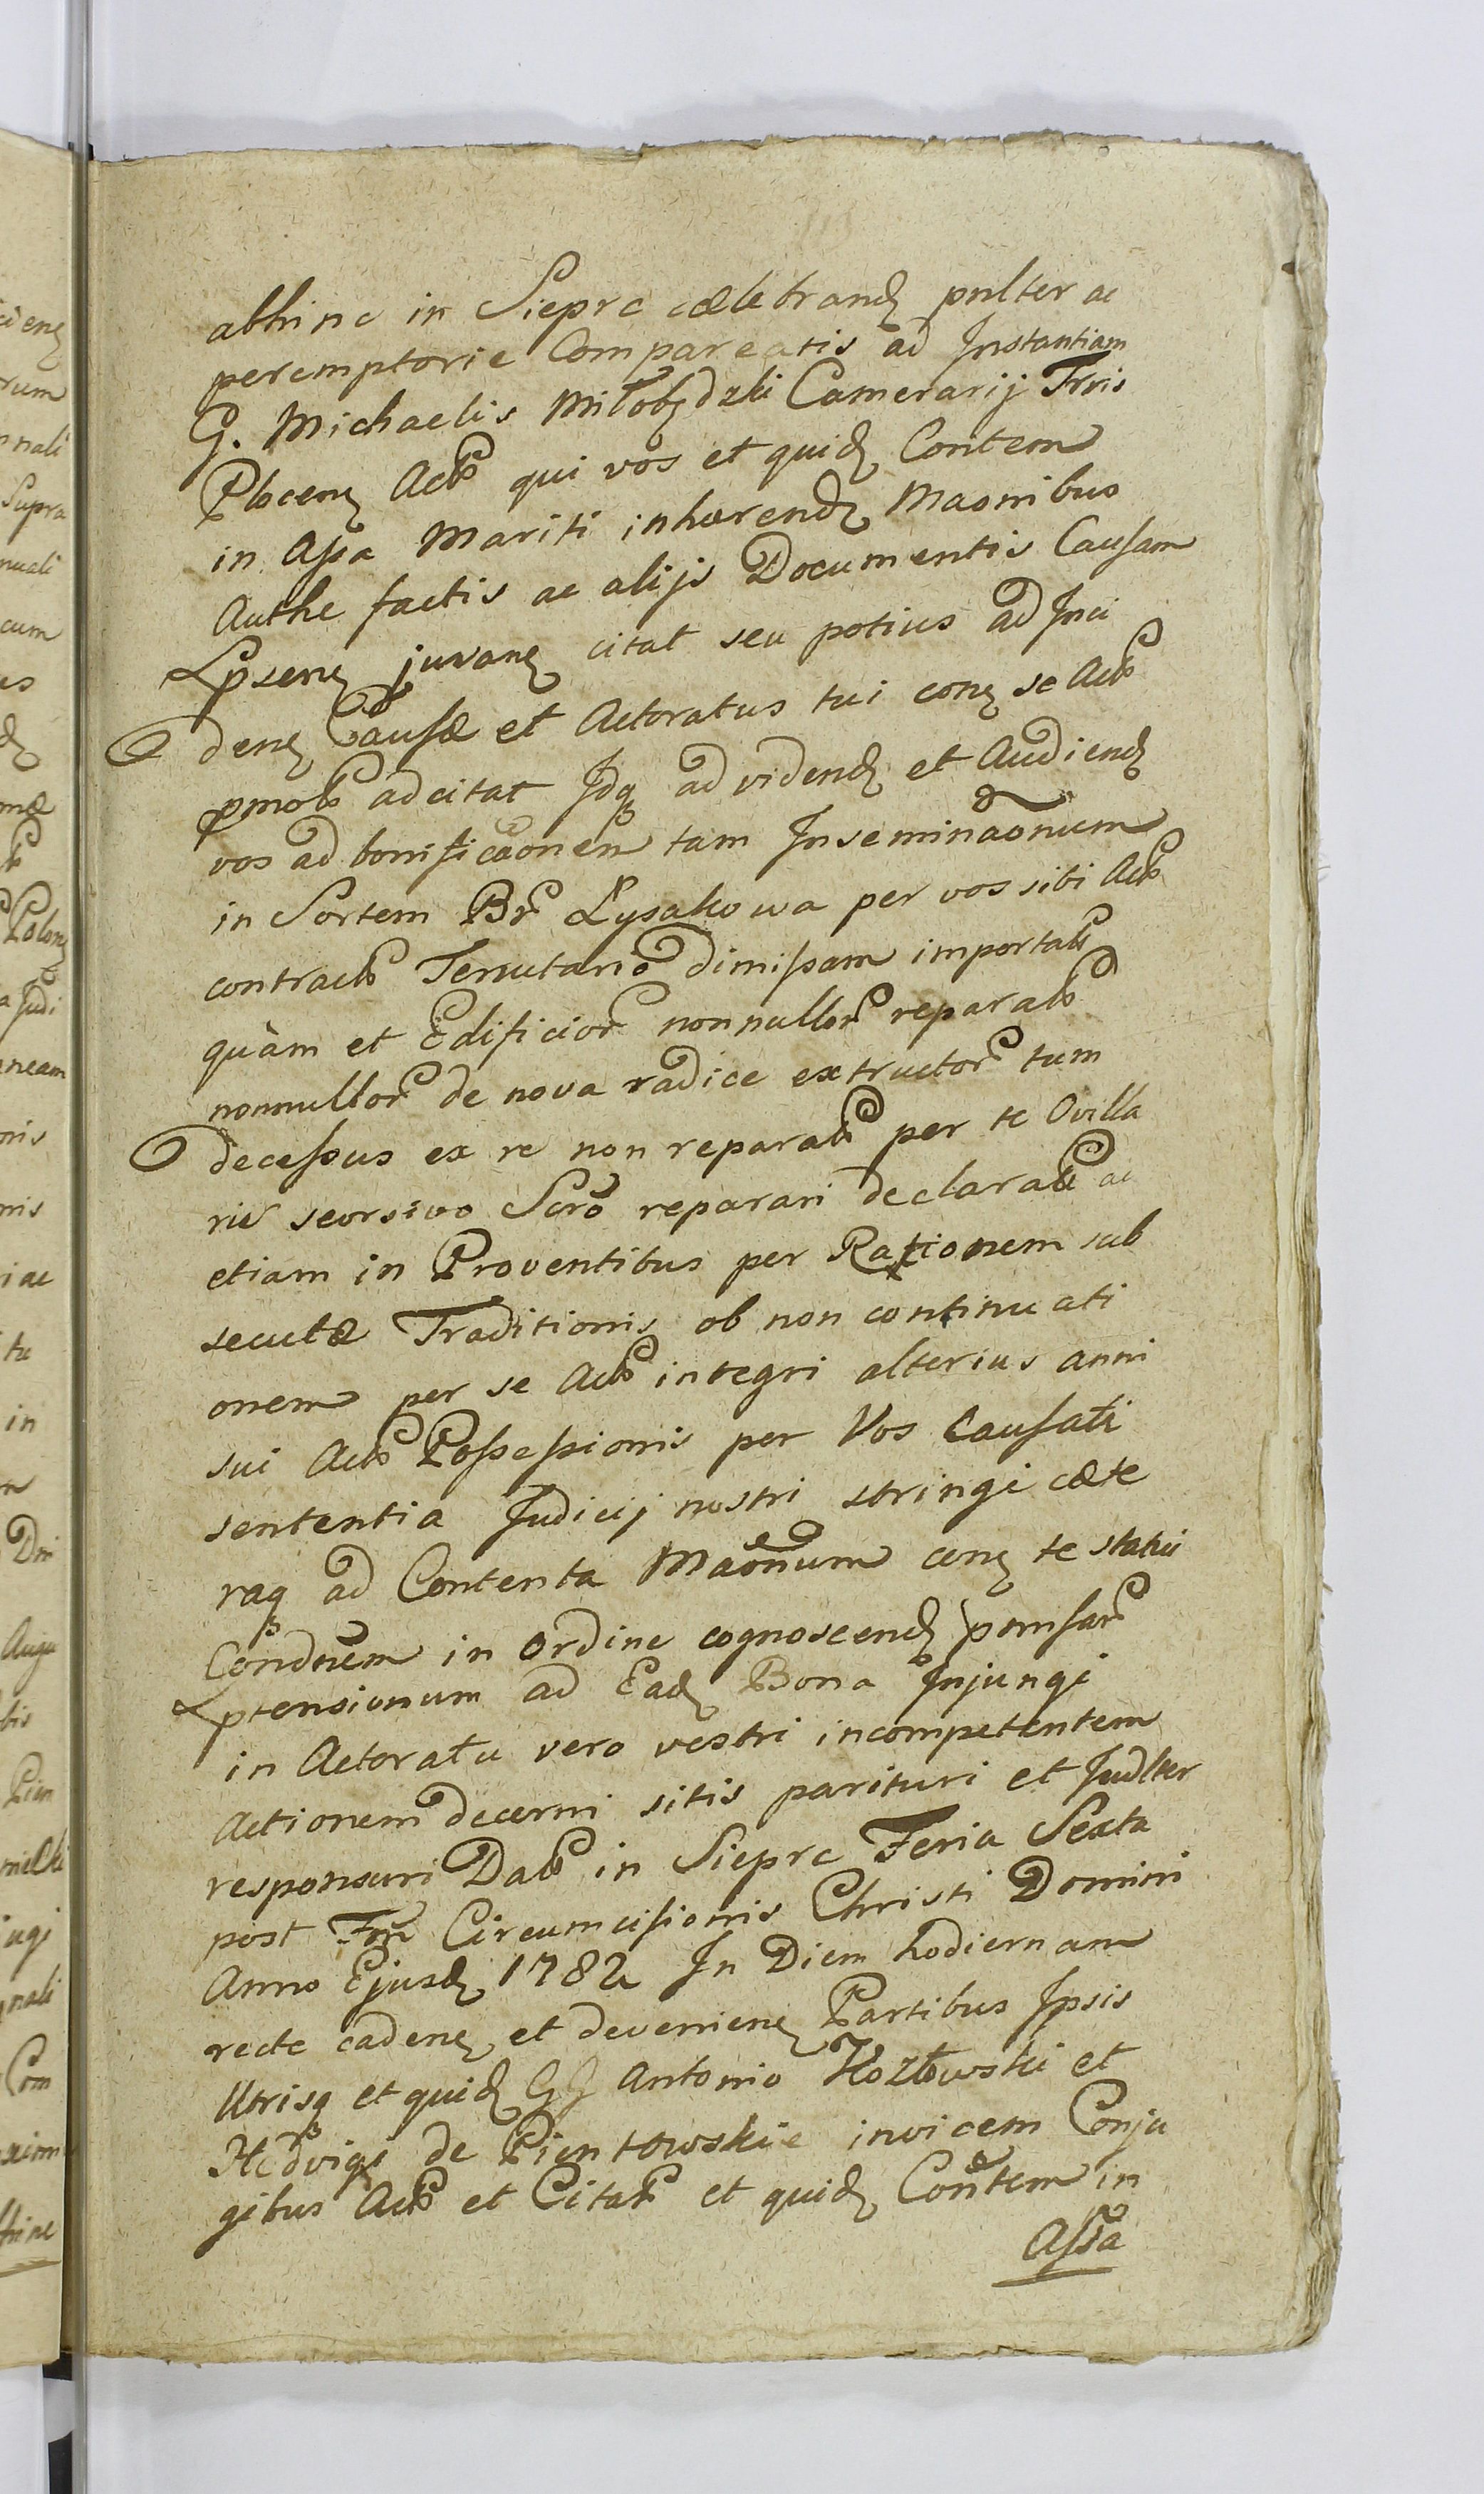 abhinc in Sieprc cælebrand pnlter ac
peremptorie Compareatis ad Instantiam
G. Michaelis Miłobędzki Camerarij Trris
Plocen Acts qui vos et quid Contem
in Assa Mariti inhærend Maonibus
Authe factis ac alijs Documentis Causam
Ppsen juvan citat seu potius ad Inci
den Causæ et Actoratus tui con se Acts
pmots adcitat Idq ad vidend et Audiend
vos ad bonificãonem tam Inseminãonum
in Sortem Br Łysakowa per vos sibi Acts
contracts Tenutario dimissam importats
quàm et Edificior nonnullor reparats
nonnullor de nova radice extructor tum
decessus ex re non reparats per te Ovilla
rii seorsivo Scrō reparari declarats ac
etiam in Proventibus per Rationem sub
secutæ Traditionis ob non continuati
onem per se Acts integri alterius anni
sui Acts Possessionis per Vos Causati
sententia Judicij nostri stringi cæte
raq ad Contenta Maõnum con te statui
Condnem in Ordine cognoscend pmssar
Pptensionum ad Ead Bona Injungi
in Actoratu vero vestri incompetentem
Actionem decerni sitis parituri et Judlter
responsuri Dats in Sieprc Feria Sexta
post Fm Circumcisionis Christi Domini
Anno Ejusd 1782 In Diem hodiernam
recte caden et devenien Partibus Ipsis
Utrisq et quid GG Antonio Kozłowski et
Hedvigi de Pientowskie invicem Conju
gibus Acts et Citats et quid Contem in
Assa